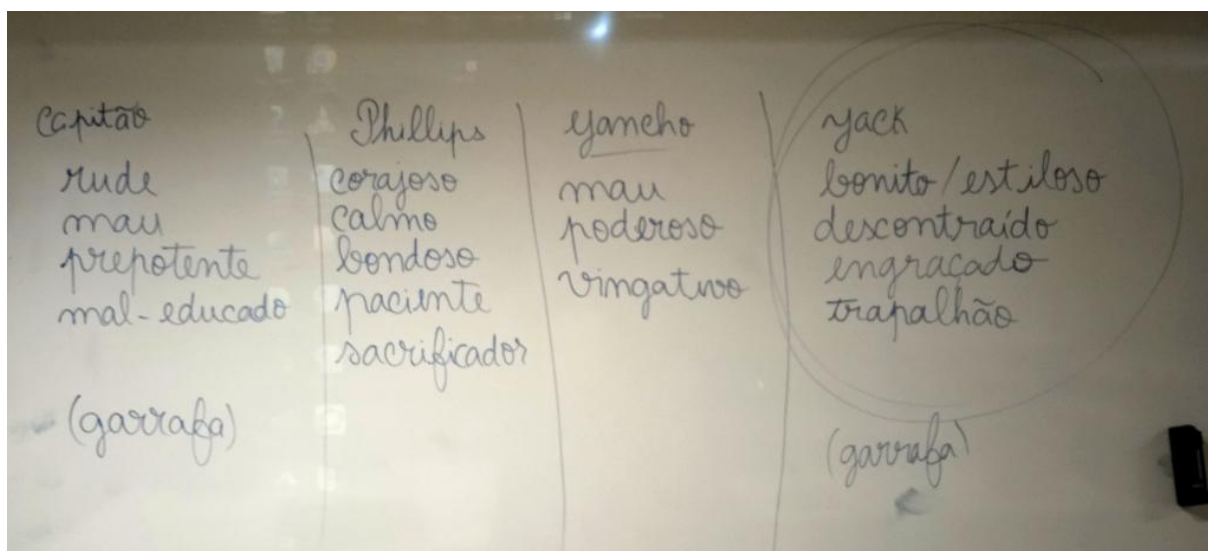 Capitão
rude
mau
prepotente
mal-educado
(garrafa)
Phillips
corajoso
calmo
bondoso
paciente
sacrificador
Gancho
mau
poderoso
vingativo
Jack
bonito/estiloso
descontraído
engraçado
trapalhão
(garrafa)